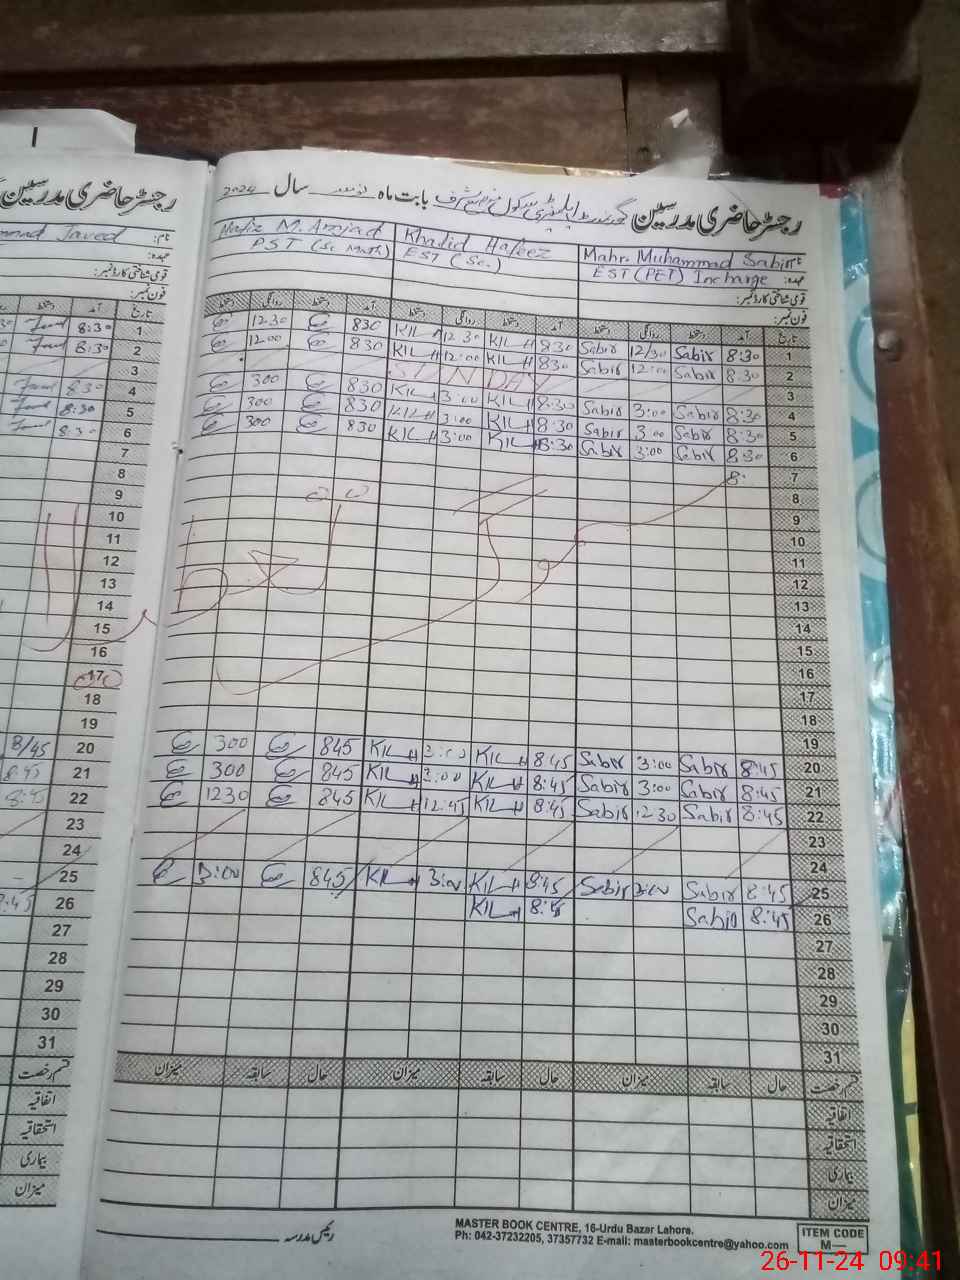 رجسٹر حاضری مدرسین گورنمنٹ ایلیمنٹری سکول بابت ماہ نومبر سال 2024
Mahr. Muhammad Sabir
EST (PET) Incharge
Khalid Hafeez
EST (Sc.)
Hafiz M. Amjad
PST (Sc Math)
نام:
عہدہ:
قومی شناختی کارڈ نمبر:
فون نمبر:
تاریخ آمد دستخط روانگی دستخط آمد دستخط روانگی دستخط آمد دستخط روانگی دستخط
1 8:30 Sabir 12/30 Sabir 8:30 KILH 12 30 KILH 830 12.30
2 8:30 Sabir 12:00 Sabir 830 KILH 12:00 KILH 830 12.00
3 SUNDAY
4 8:30 Sabir 3:00 Sabir 8:30 KILH 3:00 KILH 830 300
5 8:30 Sabir 3:00 Sabir 8:30 KILH 3:00 KILH 830 300
6 8:30 Sabir 3:00 Sabir 8:30 KILH 3:00 KILH 830 300
7 8:
8
9
10
11
12
13
14
15
16
17
18
19
20 8:45 Sabir 3:00 Sabir 845 KILH 3:00 KILH 845 300
21 8:45 Sabir 3:00 Sabir 8:45 KILH 3:00 KILH 845 300
22 8:45 Sabir 12 30 Sabir 8:45 KILH 12:45 KILH 845 1230
23
24
25 8:45 Sabir 3:00 Sabir 8:45 KILH 3:00 KILH 845 3:00
26 8:45 Sabir 8:45 KILH
27
28
29
30
31
قسم رخصت حال سابقہ میزان حال سابقہ میزان حال سابقہ میزان
اتفاقیہ
استحقاقیہ
بیماری
میزان
رئیس مدرسہ
MASTER BOOK CENTRE, 16-Urdu Bazar Lahore.
Ph: 042-37232205, 37357732 E-mail: masterbookcentre@yahoo.com
ITEM CODE
M—
رجسٹر حاضری مدرسین
Javed
نام:
عہدہ:
قومی شناختی کارڈ نمبر:
فون نمبر:
تاریخ آمد دستخط
1 8:30
2 8:30
3
4 8:30
5 8:30
6 8:30
7
8
9
10
11
12
13
14
15
16
17
18
19
20 8/45
21 8:45
22 8:45
23
24
25
26 8:45
27
28
29
30
31
قسم رخصت
اتفاقیہ
استحقاقیہ
بیماری
میزان
26-11-24 09:41